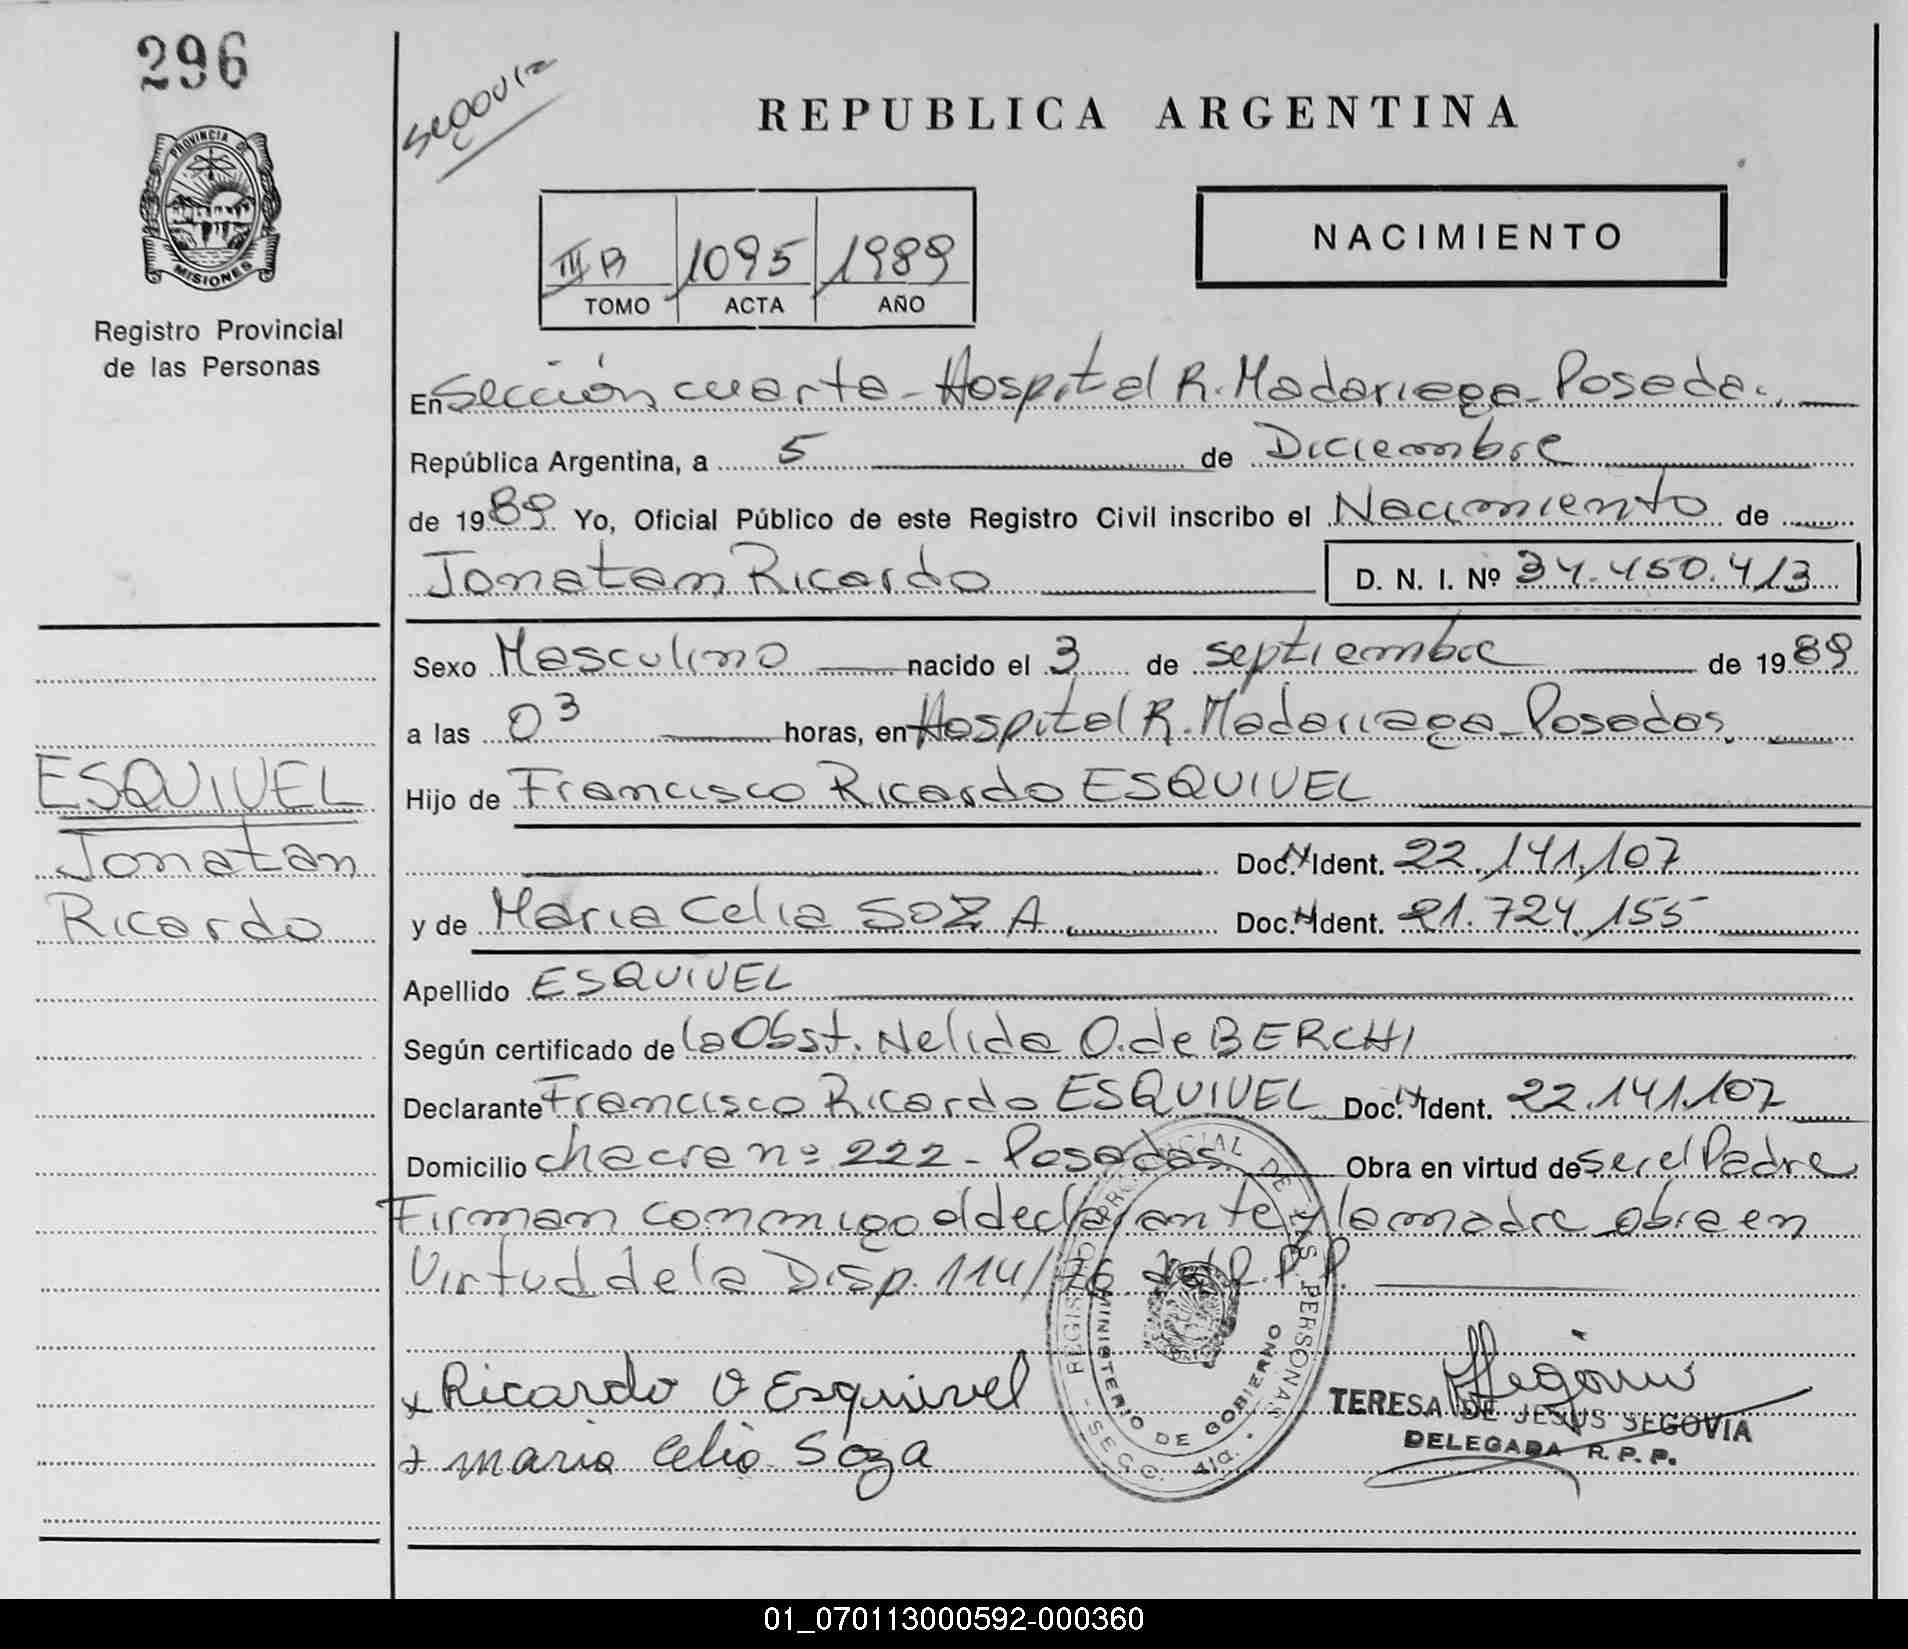 296
PROVINCIA DE
MISIONES
Registro Provincial
de las Personas
Segovia
REPUBLICA ARGENTINA
III B 1095 1989
TOMO ACTA AÑO
NACIMIENTO
En Sección cuarta - Hospital R. Madariaga - Posadas.
República Argentina, a 5 de Diciembre
de 1989 Yo, Oficial Público de este Registro Civil inscribo el Nacimiento de
Jonatan Ricardo D. N. I. Nº 34.450.413
Sexo Masculino nacido el 3 de septiembre de 1989
a las 03 horas, en Hospital R. Madariaga - Posadas.
Hijo de Francisco Ricardo ESQUIVEL
Doc. N. Ident. 22.141.107
y de Maria Celia SOZA Doc. N. Ident. 21.724.155
Apellido ESQUIVEL
Según certificado de la Obst. Nelida O. de BERCHI
Declarante Francisco Ricardo ESQUIVEL Doc. N. Ident. 22.141.107
Domicilio chacra nº 222 - Posadas Obra en virtud de ser el Padre
Firman conmigo el declarante y la madre obra en
Virtud de la Disp. 114/76 del R.P.P.
ESQUIVEL
Jonatan
Ricardo
x Ricardo O Esquivel
x maria Celia Soza
REGISTRO PROVINCIAL DE LAS PERSONAS
MINISTERIO DE GOBIERNO
SECC. 4ta.
TERESA DE JESUS SEGOVIA
DELEGADA R. P. P.
01_070113000592-000360